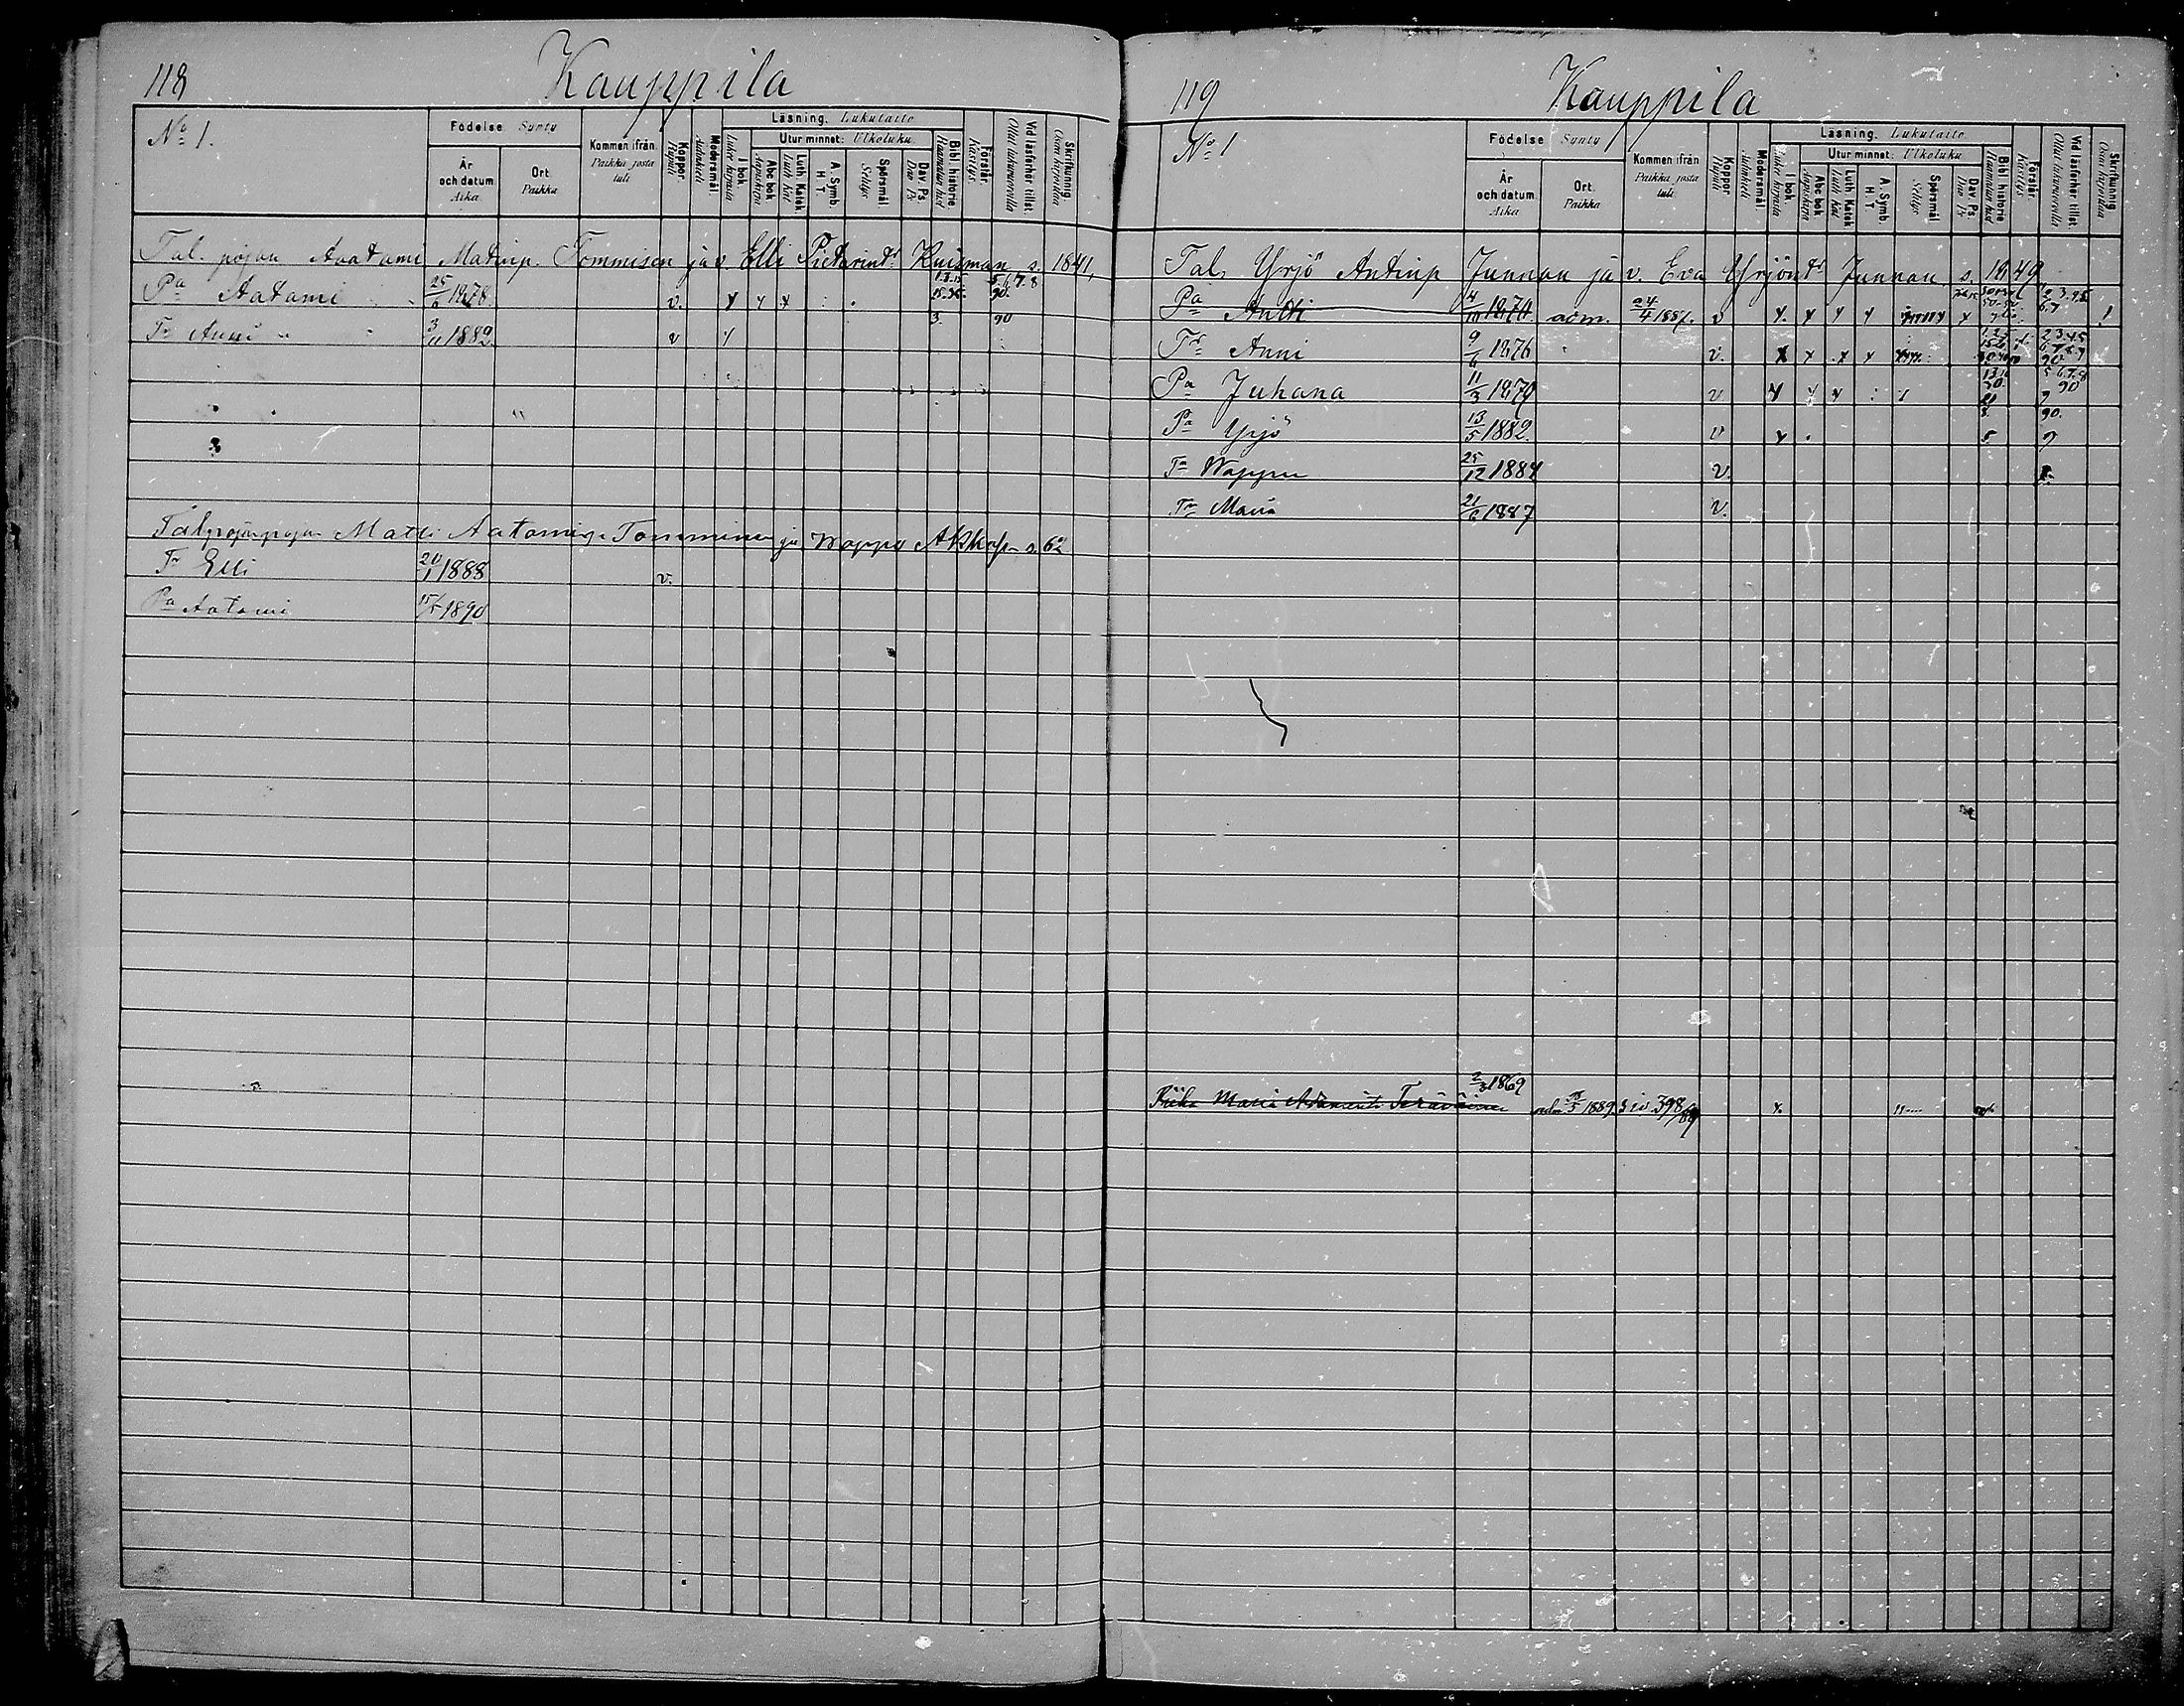 118
Kauppila
No 1.
Födelse Synty
År och datum Aika
Ort. Paikka
Kommen ifrån Paikka josta tuli
Koppor. Rupuli
Modersmål. Äidinkieli
Läsning. Lukutaito
I bok. Lukee kirjasta
Utur minnet: Ulkoluku
Abc bok Aapiskirja
Luth. Katek. Luth. Kat
A. Symb. H. T.
Spörsmål Selitys
Dav. Ps. Dav. Ps
Bibl. historie. Raamatun hist
Förstår. Käsitys.
Vid läsförhör tillst. Ollut lukuvuorolla
Skrifkunnig. Osaa kirjoittaa
Tal. pojan Aatami Matinp. Tommisen ja v. Elli Pietarint. Kuisman s. 1841,
Pa Aatami 25/6 1878. v. x x x 90.
Tr Anni 3/11 1882. v x 3. 90
Tal. pojanpojan Matti Aatamip. Tommisen ja Wappu s. 62
Tr Elli 1888 v.
Pa Aatami 15/5 1890
119
Kauppila
No 1
Födelse Synty
År och datum Aika
Ort. Paikka
Kommen ifrån Paikka josta tuli
Koppor. Rupuli
Modersmål. Äidinkieli
Läsning. Lukutaito
I bok. Lukee kirjasta
Utur minnet: Ulkoluku
Abc bok Aapiskirja
Luth. Katek Luth. Kat
A. Symb. H. T.
Spörsmål Selitys
Dav. Ps. Dav. Ps
Bibl. historie Raamatun hist
Förstår. Käsitys
Vid läsförhör tillst. Ollut lukuvuorolla
Skrifkunnig Osaa kirjoittaa
Tal. Yrjö Antinp Junnon ja v. Eva Yrjönt. Junnon s. 1849
Pa Antti 4/10 1874 adm. 24/4 1887. v x. x x x x
Tr Anni 9/6 1876 v. x x x x
Pa Juhana 11/3 1879 v x x x 90
Pa Yrjö 13/5 1882. v x 90.
Tr Wappu 25/12 1884 v.
Tr Maria 21/6 1887 v.
2/3 1869
Maria 1889 398/89 x.